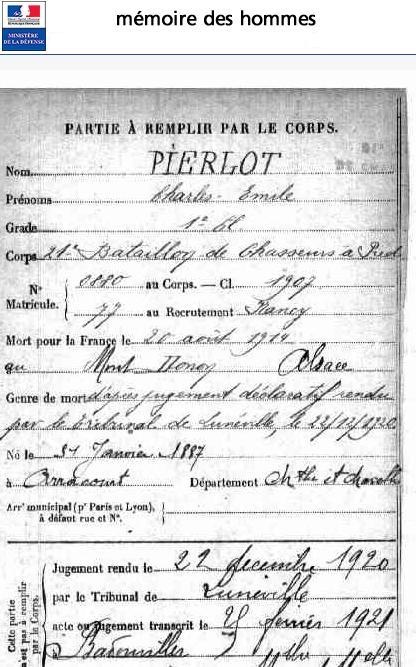 mémoire des hommes
RÉPUBLIQUE FRANÇAISE
MINISTÈRE
DE LA DÉFENSE
PARTIE À REMPLIR PAR LE CORPS.
Nom PIERLOT
Prénoms Charles Emile
Grade 1e Cl
Corps 21e Bataillon de Chasseurs à Pied
N° Matricule. 0880 au Corps. — Cl. 1907
77 au Recrutement Nancy
Mort pour la France le 20 août 1914
au Mont Donon Alsace
Genre de mort d'après jugement déclaratif rendu
par le Tribunal de Lunéville, le 22/12/1920
Né le 31 Janvier 1887
à Arracourt Département Mthe et Moselle
Arr' municipal (p' Paris et Lyon),
à défaut rue et N°.
Cette partie
n'est pas à remplir
par le Corps.
Jugement rendu le 22 décembre 1920
par le Tribunal de Lunéville
acte ou jugement transcrit le février 1921
à Badonviller